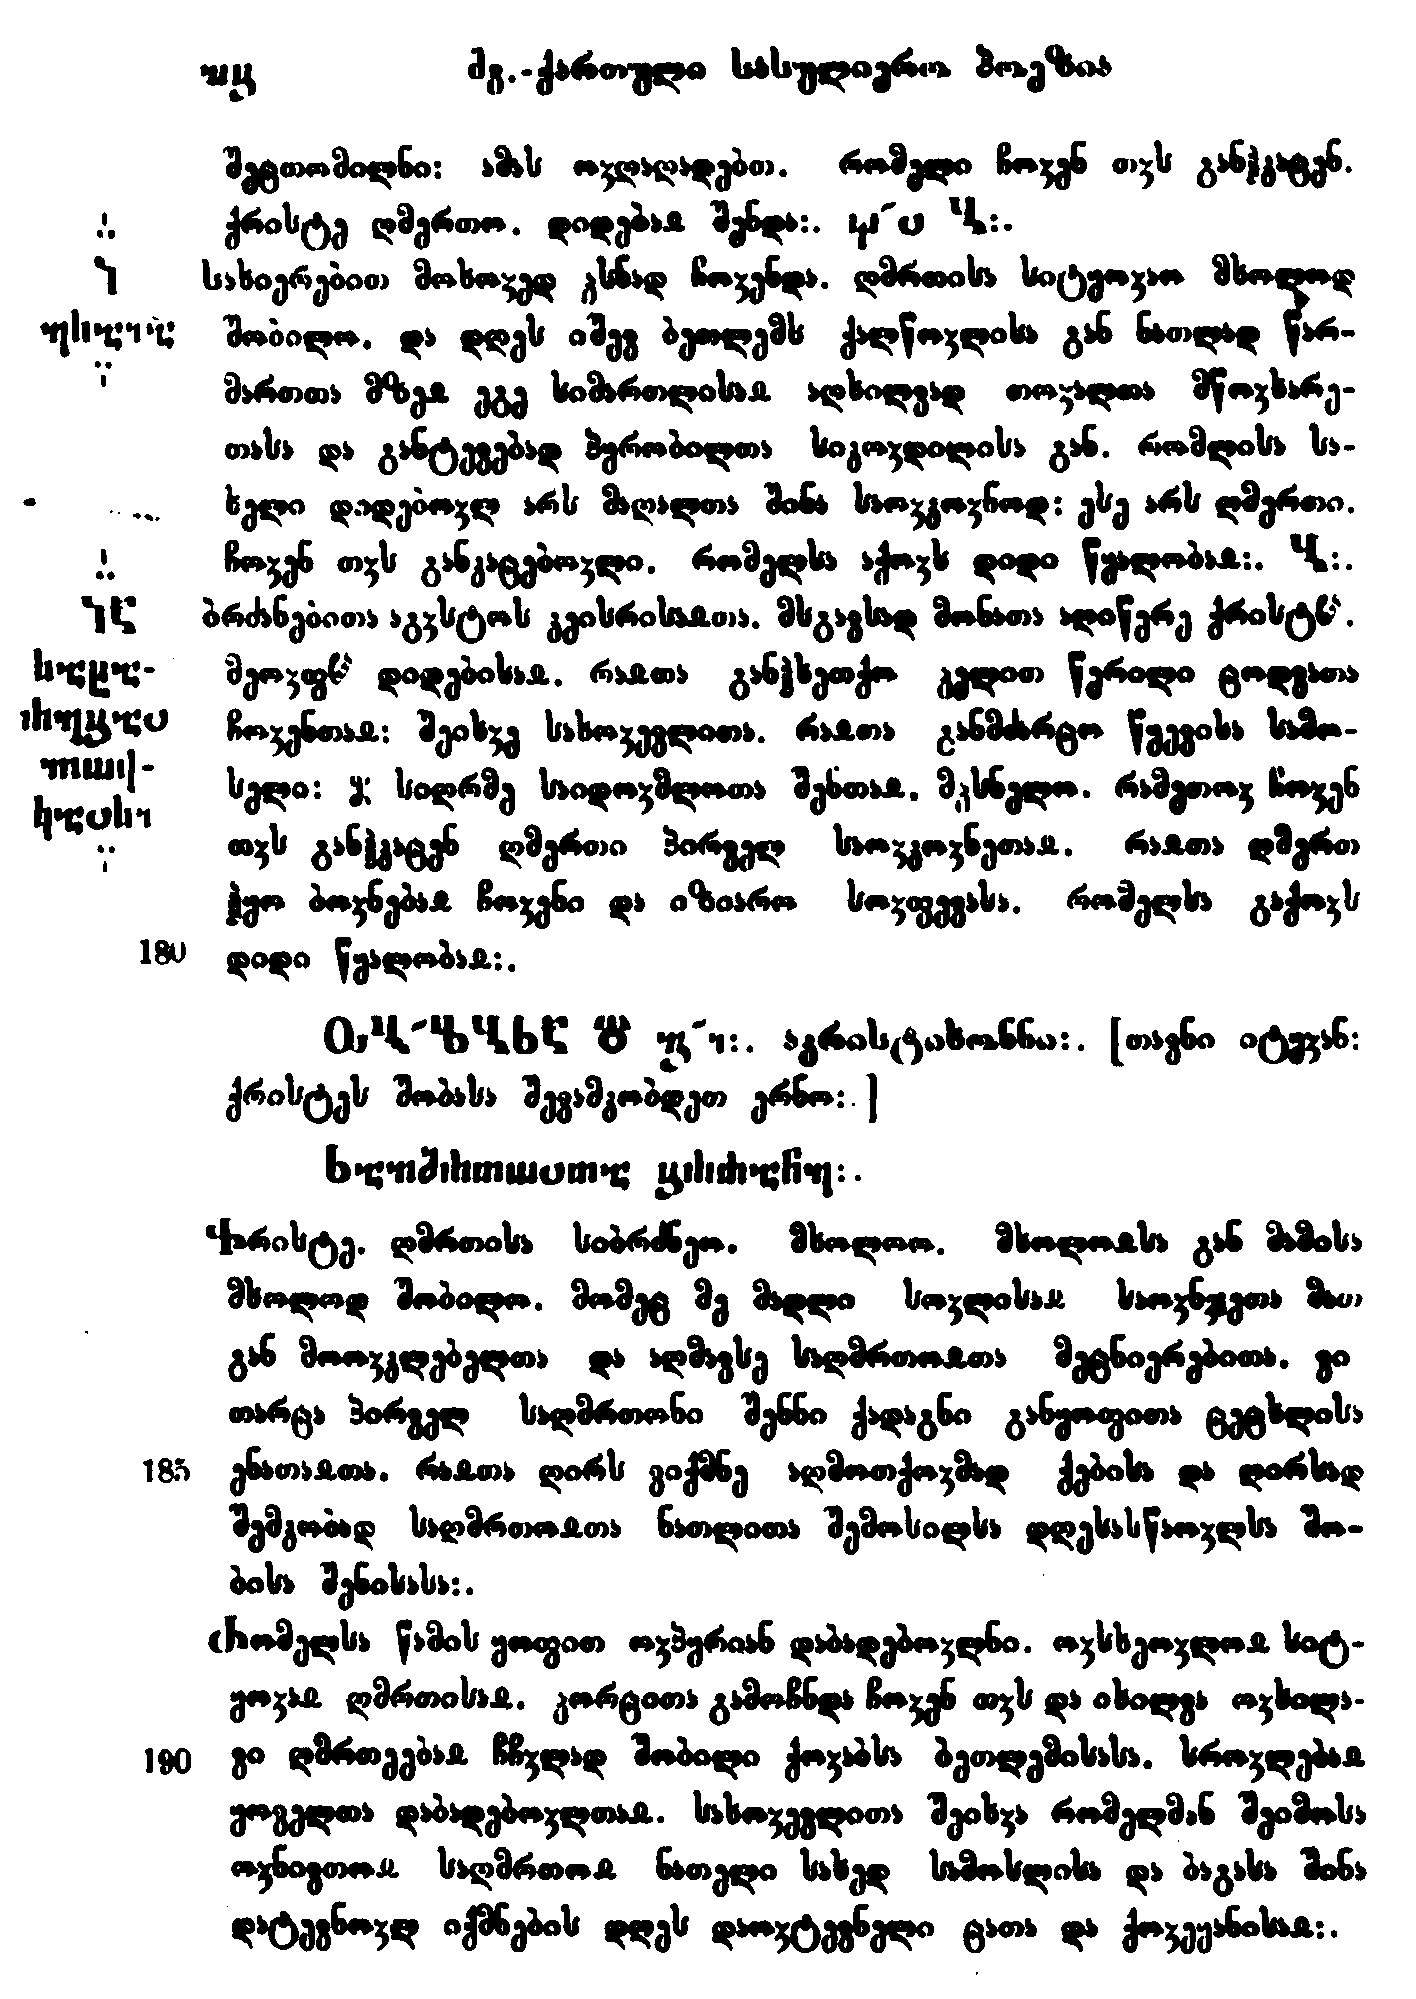 ძვ.-ქართული სასულიერო პოეზია
შეცთომილნი: ამას ოჳღაღადებთ. რომელი ჩოჳენ თჳს განჰკაცენ.
ქრისტე ღმერთო. დიდებაჲ შენდა:.
სახიერებით მოხოჳედ კსნად ჩოჳენდა. ღმრთისა სიტყოჳაო მხოლოდ
შობილო. და დღეს იშევ ბეთლემს ქალწოჳლისა გან ნათლად წარ-
მართთა მზეჲ ეგე სიმართლისაჲ აღხილვად თოჳალთა მწოჳხარე-
თასა და განტევებად პყრობილთა სიკოჳდილისა გან. რომლისა სა-
ხელი დიდებოჳლ არს მაღალთა შინა საოჳკოჳნოდ: ესე არს ღმერთი.
ჩოჳენ თჳს განკაცებოჳლი. რომელსა აქოჳს დიდი წყალობაჲ:.
ბრძანებითა აგჳსტოს კეისრისაჲთა. მსგავსად მონათა აღიწერე
მეოჳფ დიდებისაჲ. რაჲთა განჰხეთქო კელით წერილი ცოდვათა
ჩოჳენთაჲ: შეიხჳე სახოჳეველითა. რაჲთა განმძარცო წყევისა სამო-
სელი: სიღრმე საიდოჳმლოთა შენთაჲ. მკსნელო. რამეთოჳ ჩოჳენ
თჳს განჰკაცენ ღმერთი პირველ საოჳკოჳნეთაჲ. რაჲთა ღმერთ
ჰყო ბოჳნებაჲ ჩოჳენი და იზიარო სოჳფევასა. რომელსა გაქოჳს
180 დიდი წყალობაჲ:.
აკრისტიხონნი:. [თავნი იტყჳან:
ქრისტეს შობასა შევამკობდეთ ერნო:.]
რისტე. ღმრთისა სიბრძნეო. მხოლოო. მხოლოჲსა გან მამისა
მხოლოდ შობილო. მომეც მე მადლი სოჳლისაჲ საოჳნჯეთა მათ
გან მოოჳკლებელთა და აღმავსე საღმრთოჲთა მეცნიერებითა. ვი
თარცა პირველ საღმრთონი შენნი ქადაგნი განყოფითა ცეცხლისა
185 ენათაჲთა. რაჲთა ღირს ვიქმნე აღმოთქოჳმად ქებისა და ღირსად
შემკობად საღმრთოჲთა ნათლითა შემოსილსა დღესასწაოჳლსა შო-
ბისა შენისასა:.
რომელსა წამის ყოფით ოჳპყრიან დაბადებოჳლნი. ოჳსხეოჳლოჲ სიტ-
ყოჳაჲ ღმრთისაჲ. კორცითა გამოჩნდა ჩოჳენ თჳს და იხილვა ოჳხილა-
190 ვი ღმრთეებაჲ ჩჩჳლად შობილი ქოჳაბსა ბეთლემისასა. სროჳლებაჲ
ყოველთა დაბადებოჳლთაჲ. სახოჳეველითა შეიხჳა რომელმან შეიმოსა
ოჳნივთოჲ საღმრთოჲ ნათელი სახედ სამოსლისა და ბაგასა შინა
დატევნოჳლ იქმნების დღეს დაოჳტევნელი ცათა და ქოჳეყანისაჲ:.